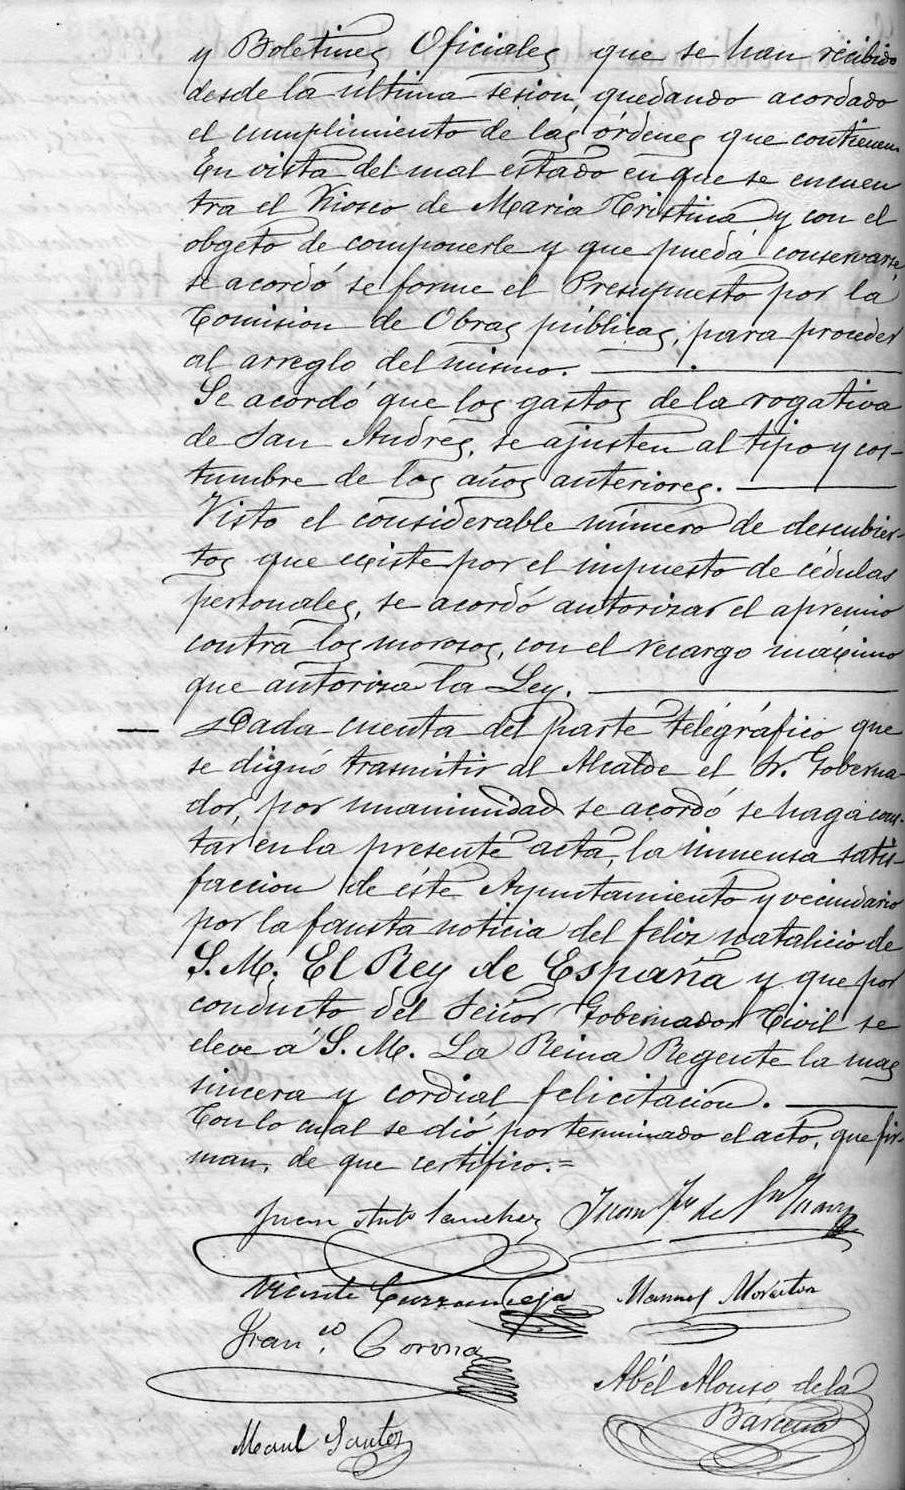 y Boletines Oficiales que se han recibido
desde la última sesion, quedando acordado
el cumplimiento de las órdenes que contienen.
En vista del mal estado en que se encuen
tra el Kiosco de Maria Cristina y con el
obgeto de componerle y que pueda conservarse,
se acordó se forme el Presupuesto por la
Comision de Obras públicas, para proceder
al arreglo del mismo.
Se acordó que los gastos de la rogativa
de San Andres, se ajusten al tipo y cos-
tumbre de los años anteriores.
Visto el considerable número de descubier-
tos que existe por el impuesto de cédulas
personales, se acordó autorizar el apremio
contra los morosos, con el recargo máximo
que autoriza la Ley.
Dada cuenta del parte telégráfico que
se dignó trasmitir al Alcalde el Sr. Goberna-
dor, por unanimidad se acordó se haga cons-
tar en la presente acta, la inmensa satis-
faccion de éste Ayuntamiento y vecindario
por la fausta noticia del feliz natalicio de
S. M. El Rey de España y que por
conducto del Señor Gobernador Civil se
eleve á S. M. La Reina Regente la mas
sincera y cordial felicitacion.
Con lo cual se dió por terminado el acto, que fir-
man, de que certifico.=
Juan Anto Sanchez Juan
Vicente Manuel
Franco Corona
Abél Alonso de la
Bárcena
Manl Santos